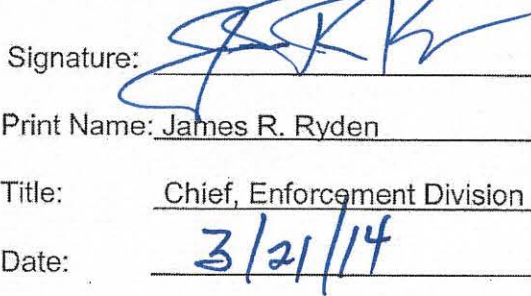 Signature:
Print Name: James R. Ryden
Title: Chief, Enforcement Division
Date: 3/21/14